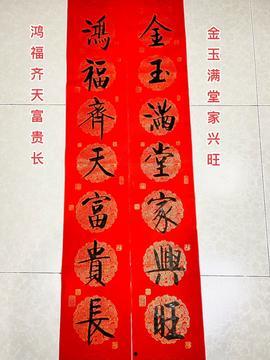 金玉满堂家兴旺
金玉满堂家興旺
鴻福齊天富貴長
鸿福齐天富贵长